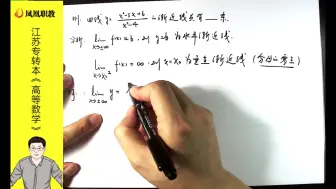 凤凰职教
江苏专转本《高等数学》
例. 曲线 y = (x²-5x+6)/(x²-4) 的渐近线共有__条.
分析. lim x→±∞ f(x)=b. 则 y=b 为水平渐近线.
lim x→x₀ f(x)=∞. 则 x=x₀ 为垂直渐近线
lim x→±∞ y =